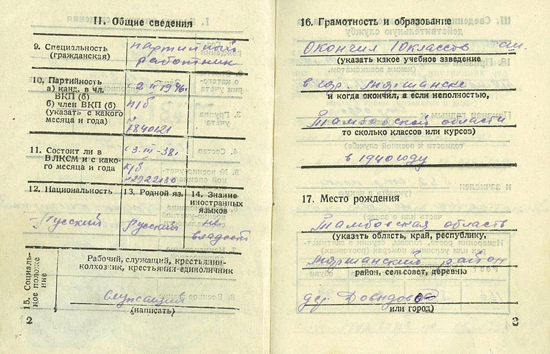 II. Общие сведения
9. Специальность
(гражданская)
партийный
работник
10. Партийность
а) канд. в чл.
ВКП (б)
б) член ВКП (б)
(указать с какого
месяца и года)
с 2 II 1946.
п/б
7840421
11. Состоит ли в
ВЛКСМ и с како-
го месяца и года
с 3. III - 38.
12. Национальность
13. Родной яз.
14. Знание
иностранных
языков
Русский
Русский
не
владеет
15. Социаль-
ное положение
Рабочий, служащий, крестьянин-
колхозник, крестьянин-единоличник
служащий
(написать)
2
16. Грамотность и образование
Окончил 10 классов
(указать какое учебное заведение
в гор. Моршанске
и когда окончил, а если неполностью,
Тамбовской области
то сколько классов или курсов)
в 1940 году
17. Место рождения
Тамбовская область
(указать область, край, республику,
Моршанский район
район, сельсовет, деревню
дер.
или город)
3